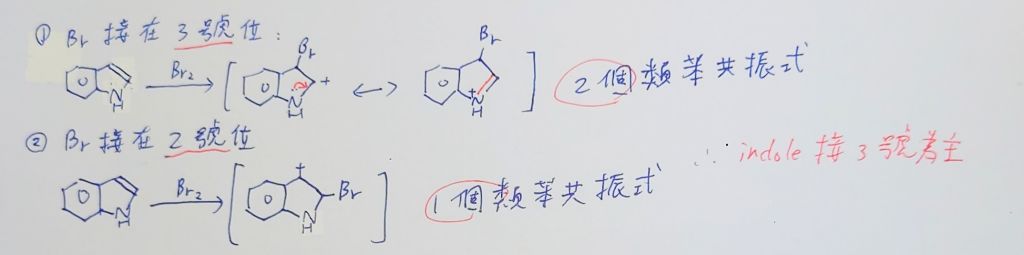 ① Br 接在 3 號位:
Br
Br
Br₂
+
+
N
H
N
H
N
H
2個類苯共振式
② Br 接在 2 號位
∴ indole 接 3 號為主
Br₂
+
Br
N
H
N
H
1個類苯共振式